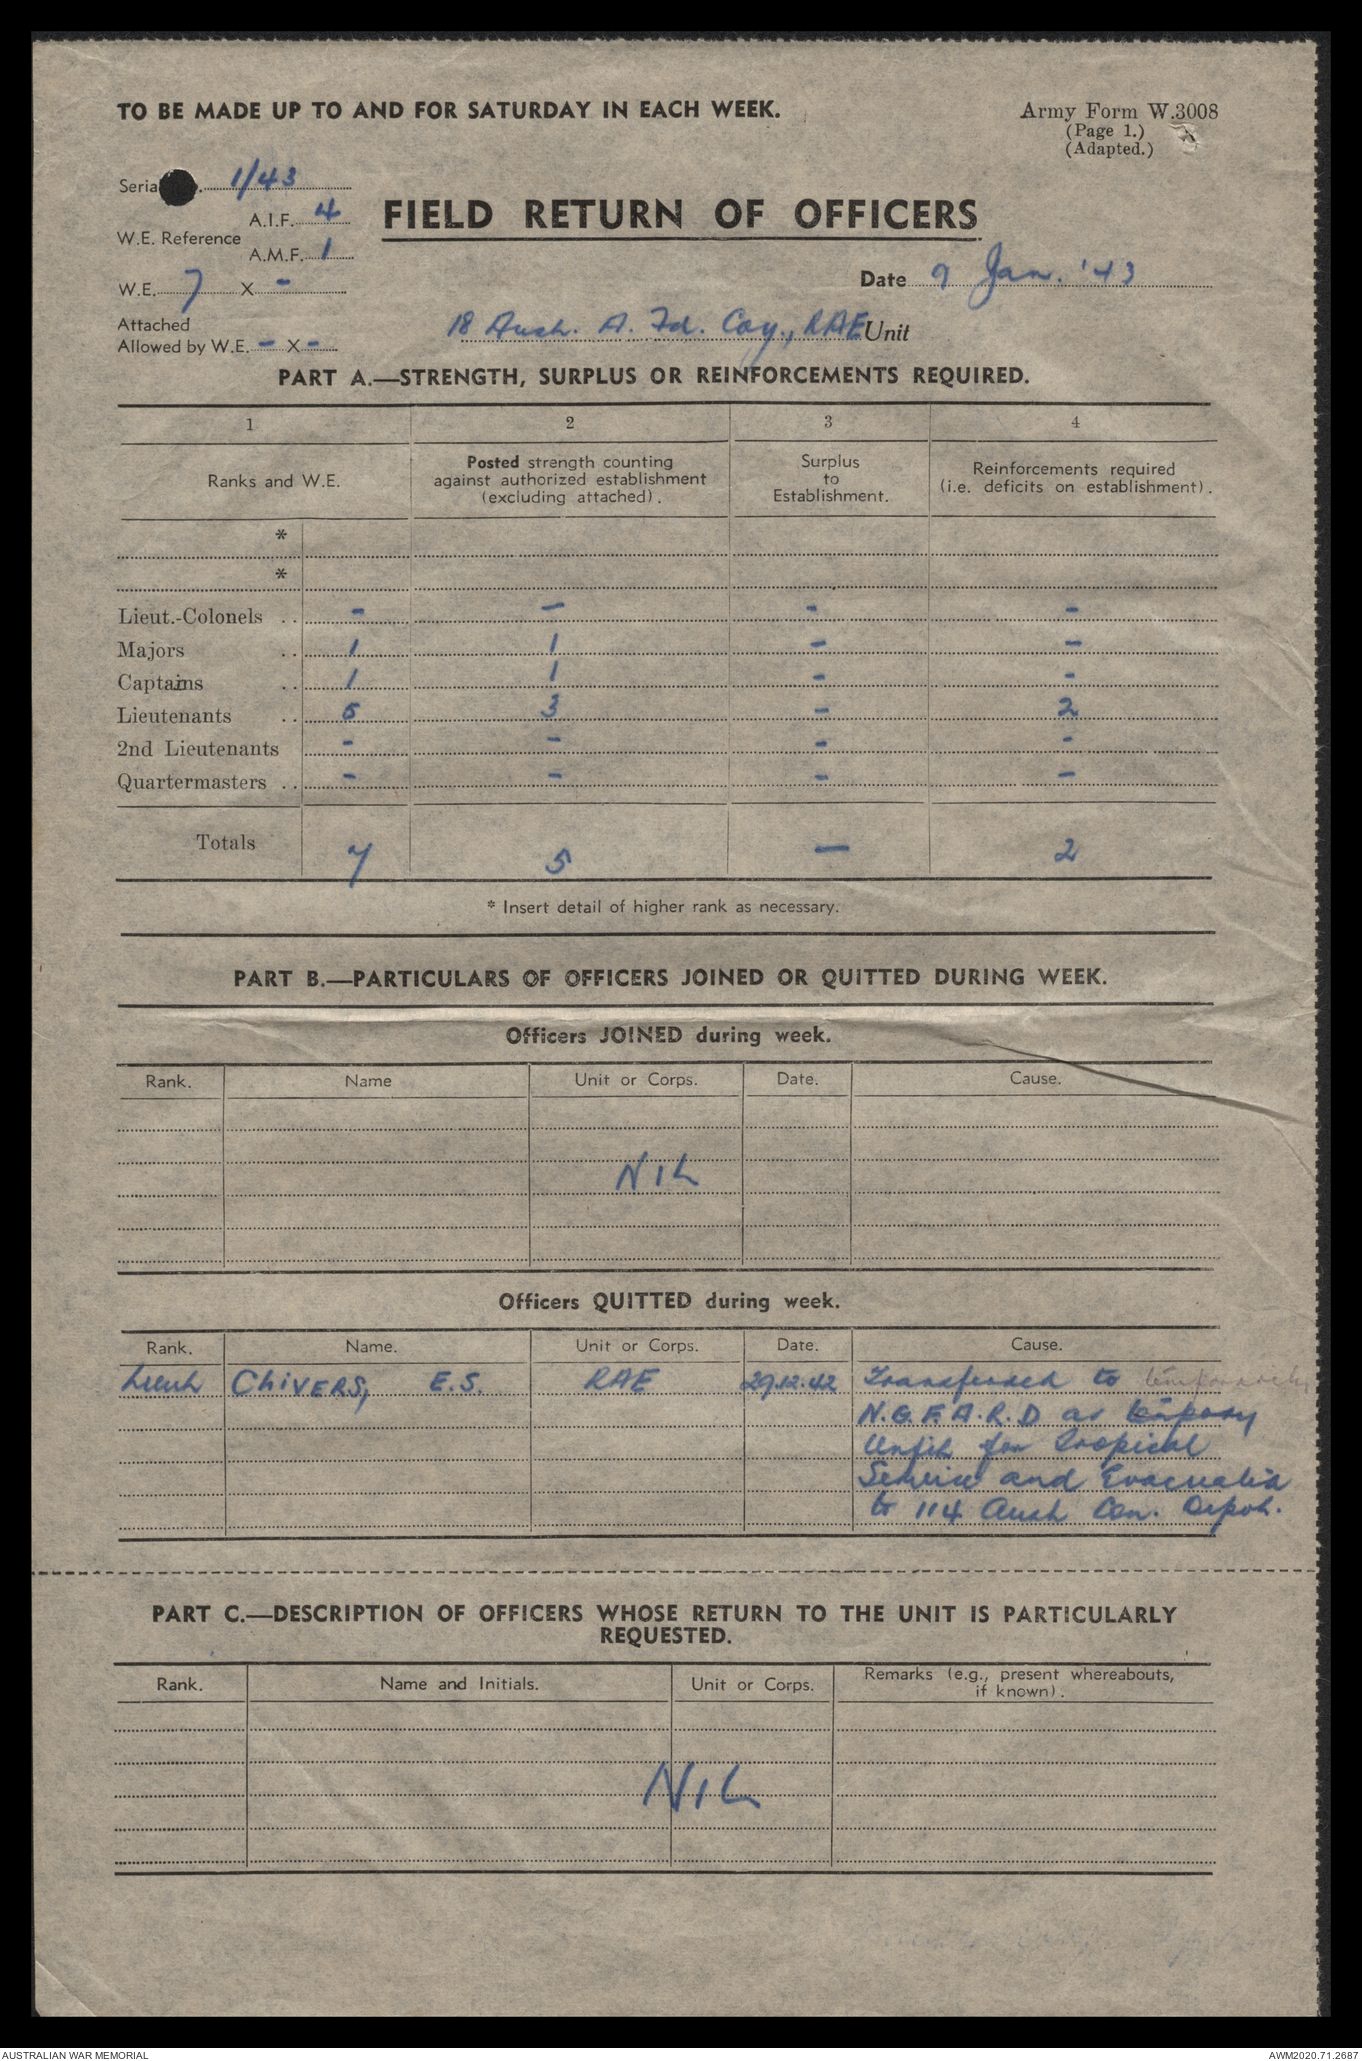 TO BE MADE UP TO AND FOR SATURDAY IN EACH WEEK.
Army Form W.3008
(Page 1.)
(Adapted.)
Seria . 1/43
A.I.F. 4
W.E. Reference
A.M.F. 1
FIELD RETURN OF OFFICERS
W.E. 7 X -
Date 9 Jan. '43
Attached
Allowed by W.E. - X -
18 Aust. A. Fd. Coy., RAE Unit
PART A.—STRENGTH, SURPLUS OR REINFORCEMENTS REQUIRED.
1 2 3 4
Ranks and W.E.
Posted strength counting
against authorized establishment
(excluding attached).
Surplus
to
Establishment.
Reinforcements required
(i.e. deficits on establishment).
*
*
Lieut.-Colonels .. - - - -
Majors .. 1 1 - -
Captains .. 1 1 - -
Lieutenants .. 5 3 - 2
2nd Lieutenants - - - -
Quartermasters .. - - - -
Totals 7 5 - 2
* Insert detail of higher rank as necessary.
PART B.—PARTICULARS OF OFFICERS JOINED OR QUITTED DURING WEEK.
Officers JOINED during week.
Rank. Name Unit or Corps. Date. Cause.
NIL
Officers QUITTED during week.
Rank. Name. Unit or Corps. Date. Cause.
Lieut CHIVERS, E.S. RAE 29.12.42 Transferred to temporarily
N.G.F.A.R.D as
Unfit for Tropical
Service and Evacuated
to 114 Aust Con. Depot.
PART C.—DESCRIPTION OF OFFICERS WHOSE RETURN TO THE UNIT IS PARTICULARLY
REQUESTED.
Rank. Name and Initials. Unit or Corps. Remarks (e.g., present whereabouts,
if known).
NIL
AUSTRALIAN WAR MEMORIAL
AWM2020.71.2687